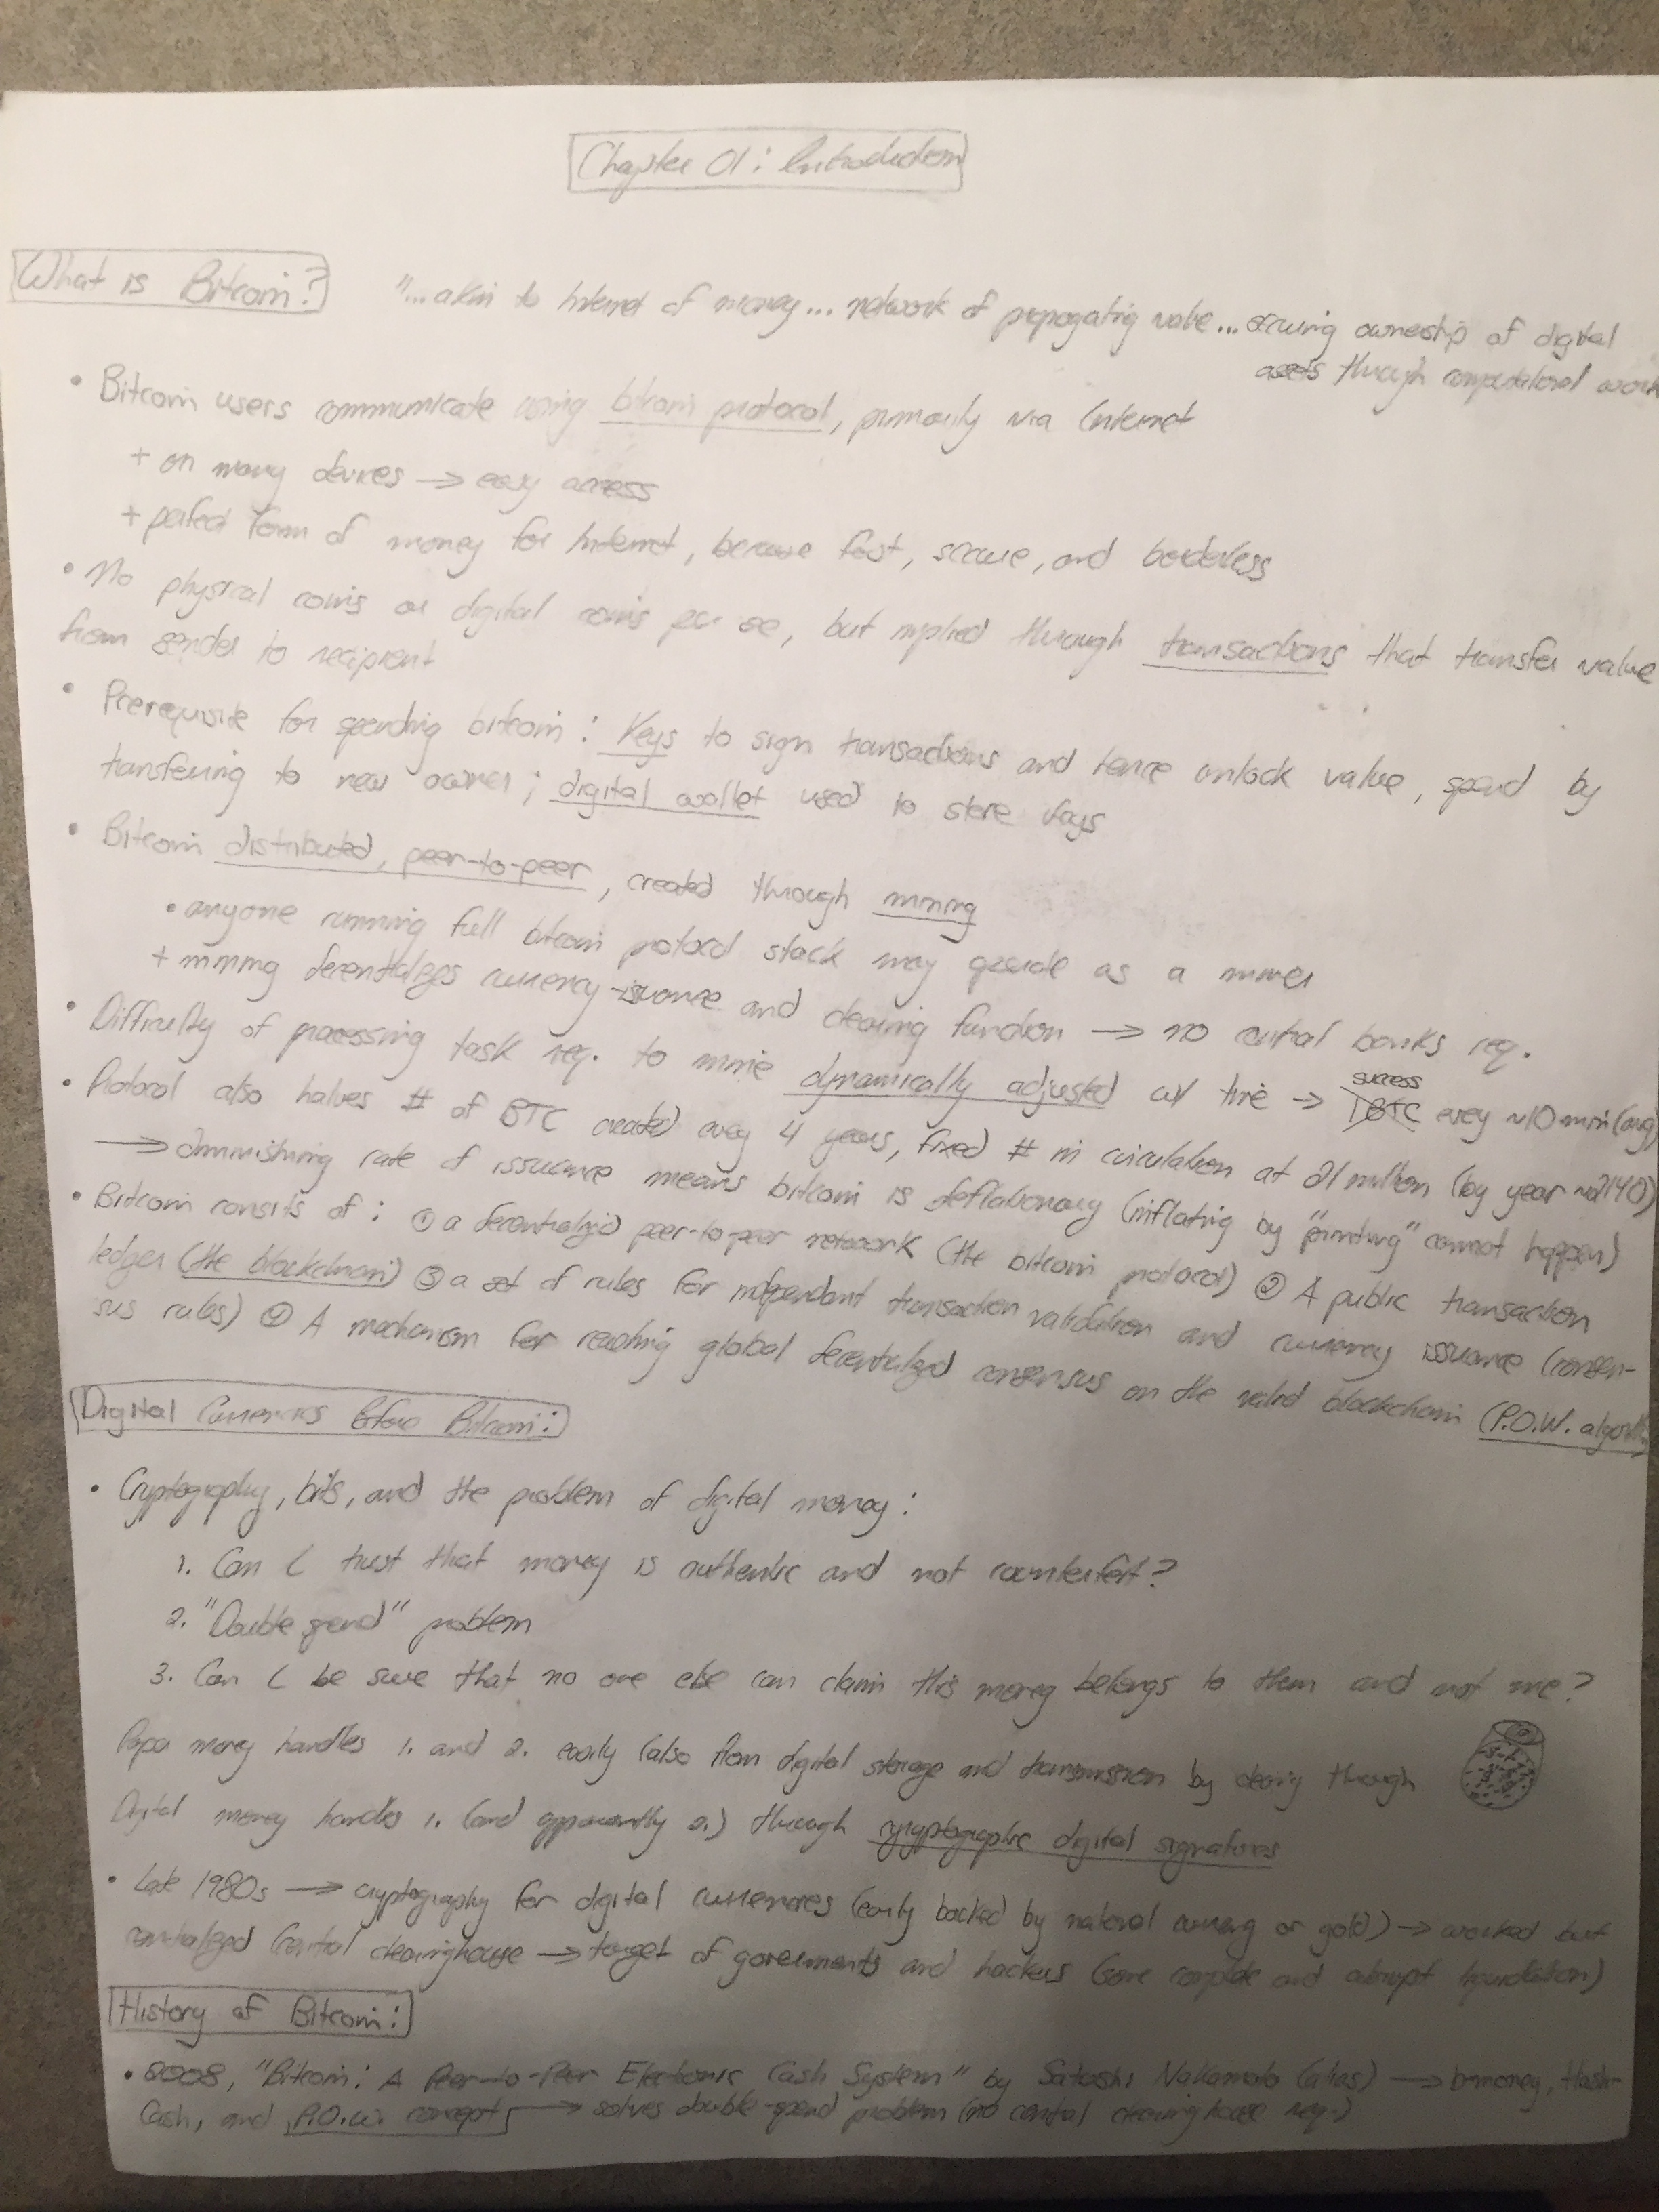 Chapter 01: Introduction
What is Bitcoin?
"...akin to Internet of money... network of propogating value... securing ownership of digital
assets through computational work
• Bitcoin users communicate using bitcoin protocol, primarily via Internet
+ on many devices → easy access
+ perfect form of money for Internet, because fast, secure, and borderless
• No physical coins or digital coins per se, but implied through transactions that transfer value
from sender to recipient
• Prerequisite for spending bitcoin: Keys to sign transactions and hence unlock value, spend by
transfering to new owner; digital wallet used to store keys
• Bitcoin distributed, peer-to-peer, created through mining
• anyone running full bitcoin protocol stack may operate as a miner
+ mining decentralizes currency-issuance and clearing function → no central banks req.
• Difficulty of processing task req. to mine dynamically adjusted w/ time → success every ~10 min (avg)
• Protocol also halves # of BTC created every 4 years, fixed # in circulation at 21 million (by year ~2140)
→ diminishing rate of issuance means bitcoin is deflationary (inflating by "printing" cannot happen)
• Bitcoin consits of: ① a decentralized peer-to-peer network (the bitcoin protocol) ② A public transaction
ledger (the blockchain) ③ a set of rules for independant transaction validation and currency issuance (consen-
sus rules) ④ A mechanism for reaching global decentralized consensus on the valid blockchain (P.O.W. algorithm
Digital Currencies Before Bitcoin:
• Cryptography, bits, and the problem of digital money:
1. Can I trust that money is authentic and not counterfeit?
2. "Double spend" problem
3. Can I be sure that no one else can claim this money belongs to them and not me?
Paper money handles 1. and 2. easily (also from digital storage and transmission by clearing through
Digital money handles 1. (and apparently 2.) through cryptographic digital signatures
• Late 1980s → cryptography for digital currencies (early backed by national currency or gold) → worked but
centralized (central clearinghouse → target of goverments and hackers (some complete and abrupt liquidation)
History of Bitcoin:
• 2008, "Bitcoin: A Peer-to-Peer Electronic Cash System" by Satoshi Nakamoto (alias) → b-money, Hash-
Cash, and P.O.W. concept → solves double-spend problem (no central clearing house req.)